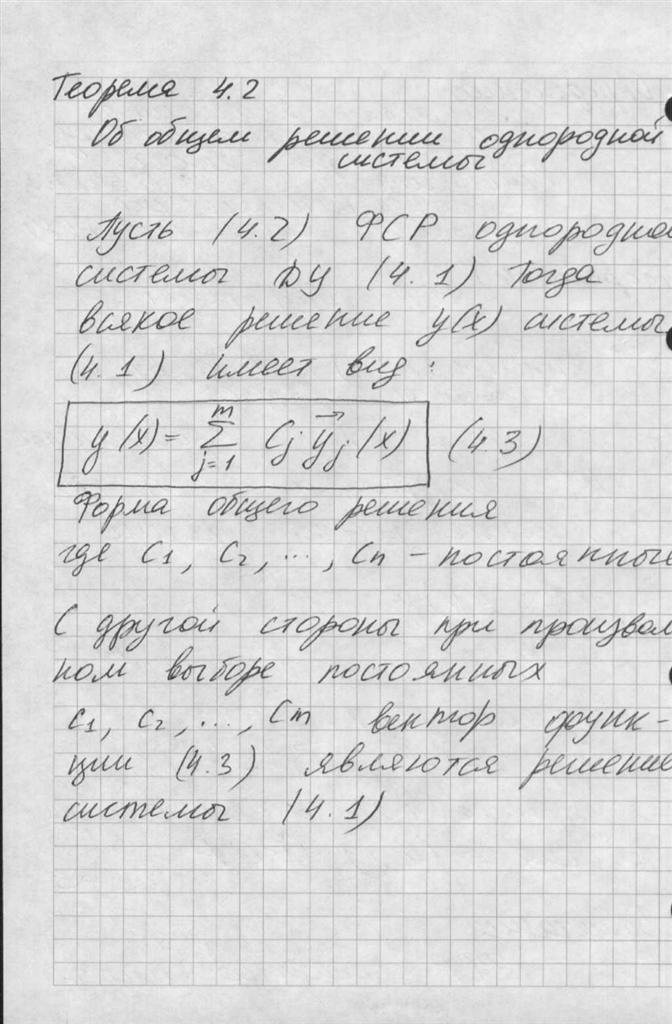 Теорема 4.2
Об общем решении однородной
системы
Пусть (4.2) ФСР однородной
системы ДУ (4.1) Тогда
всякое решение y(x) системы
(4.1) имеет вид:
y(x) = \sum_{j=1}^{m} C_j \vec{y}_j(x) (4.3)
Форма общего решения
где C1, C2, ..., Cn – постоянные
С другой стороны при произволь
ном выборе постоянных
C1, C2, ..., Cm вектор функ-
ции (4.3) являются решение
системы (4.1)